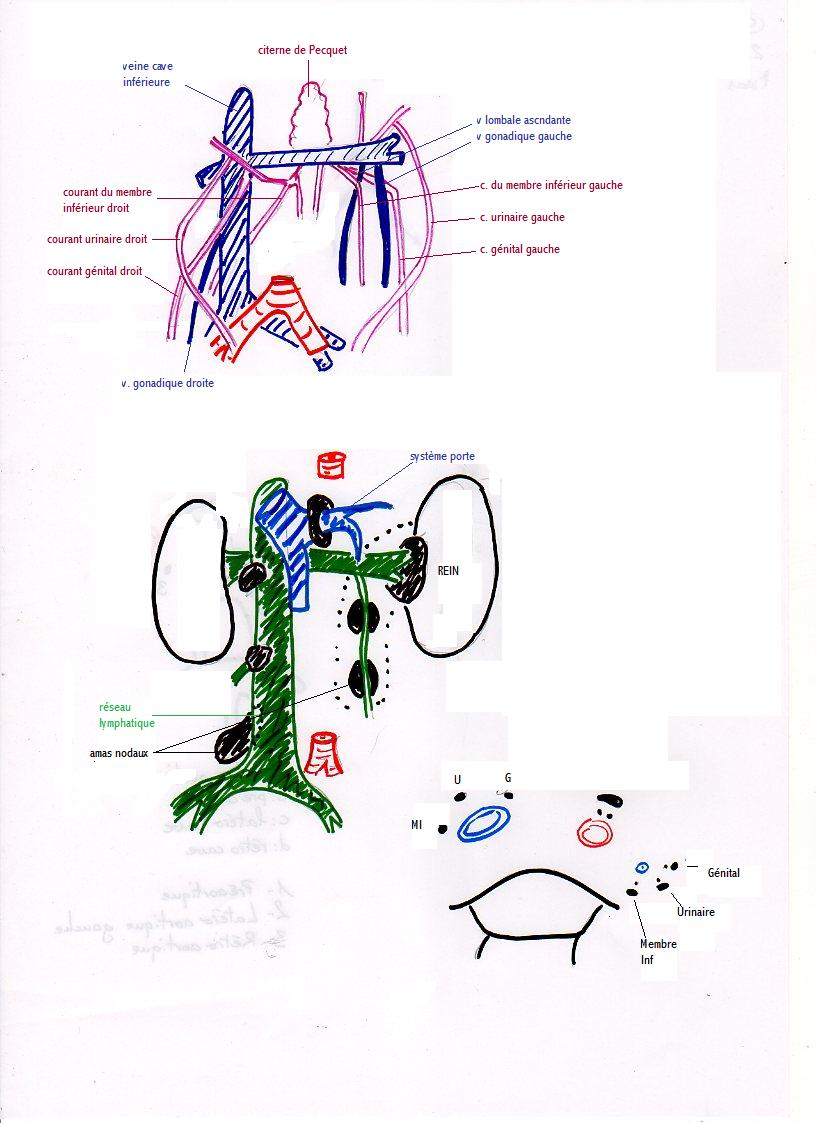 citerne de Pecquet
veine cave
inférieure
v lombale ascndante
v gonadique gauche
courant du membre
inférieur droit
c. du membre inférieur gauche
c. urinaire gauche
courant urinaire droit
c. génital gauche
courant génital droit
v. gonadique droite
système porte
REIN
réseau
lymphatique
amas nodaux
U
G
MI
Génital
Urinaire
Membre
Inf
c: latéro
d: rétro cave
1- Préaortique
2- Latéro aortique gauche
3- Rétro aortique